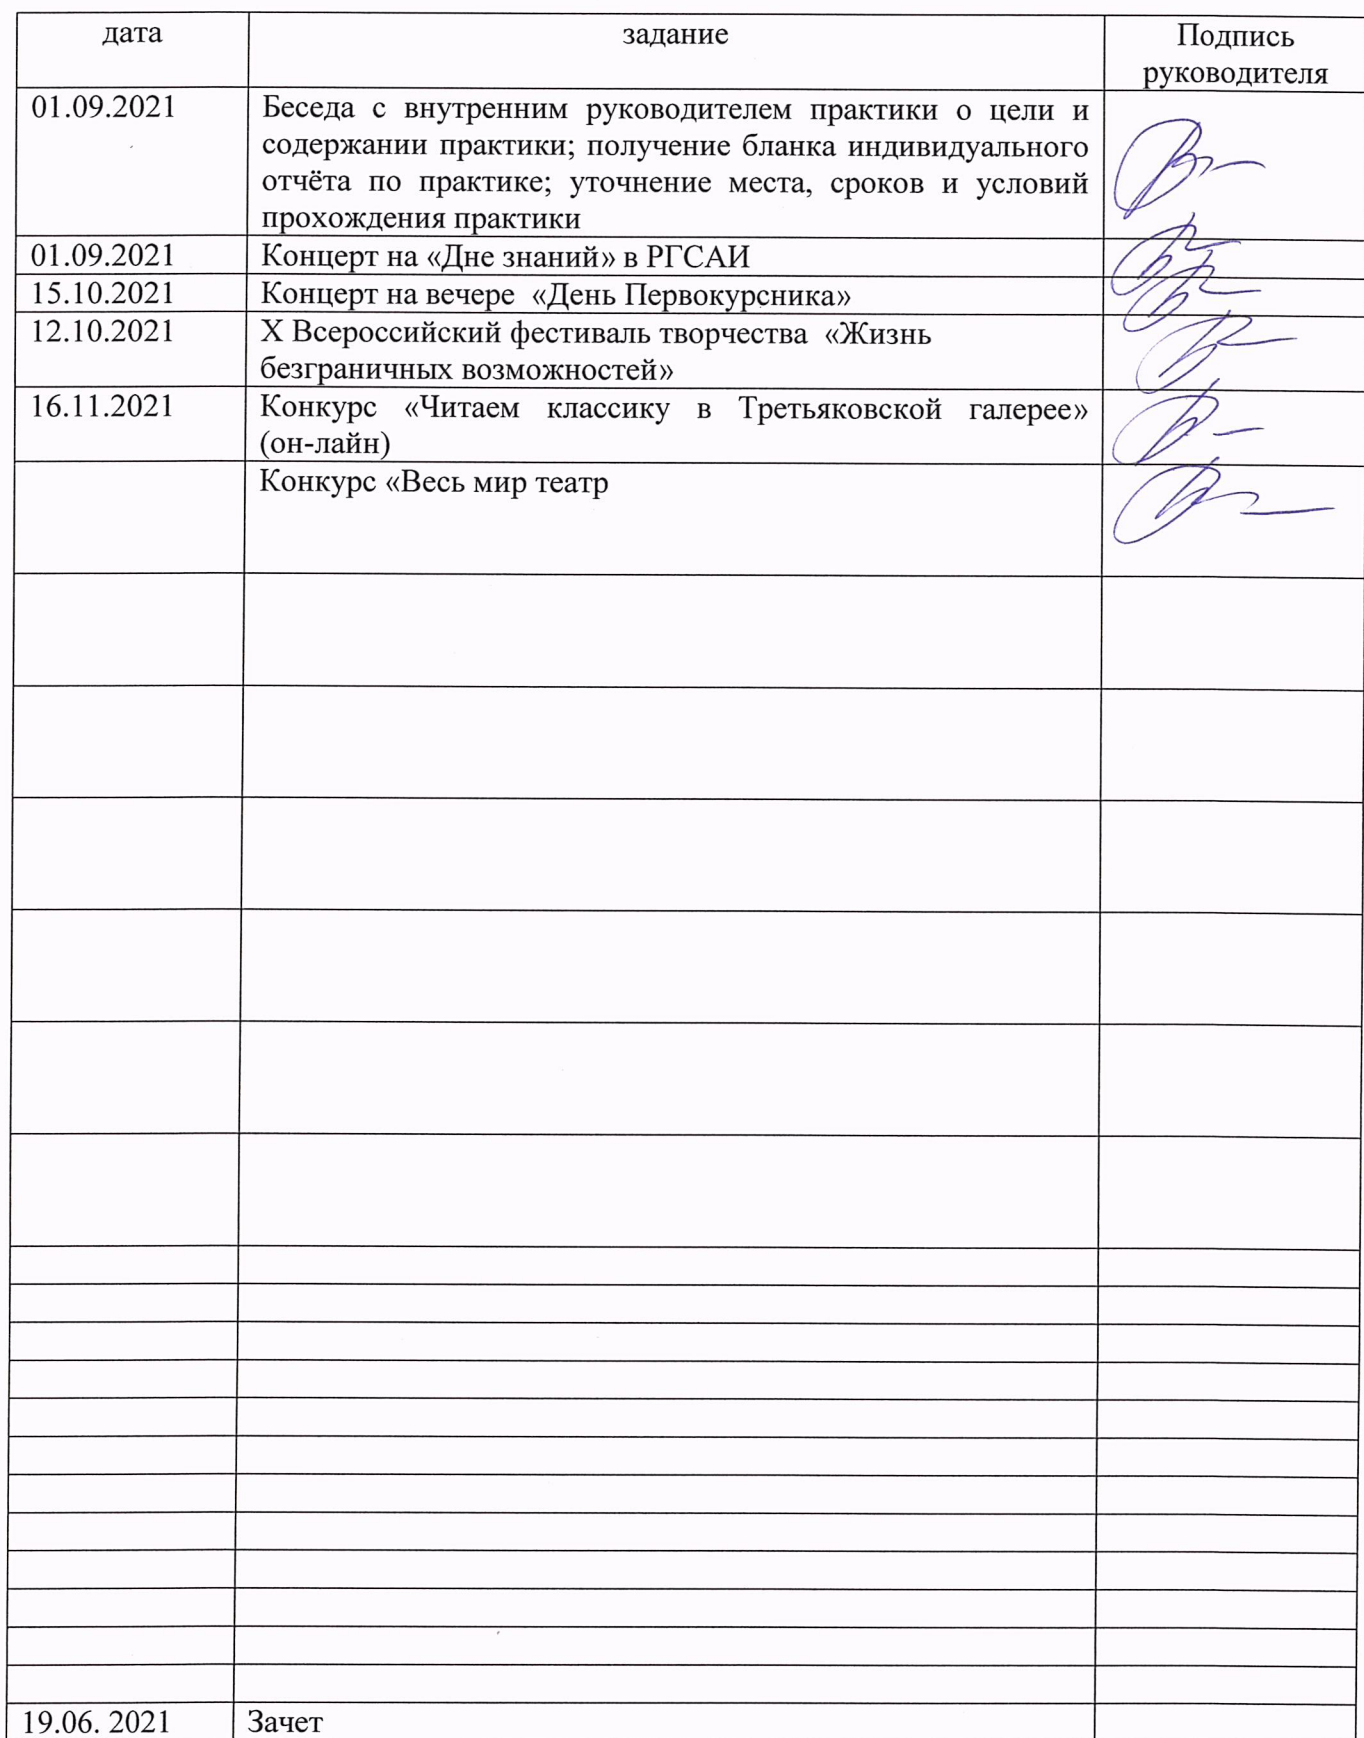 дата задание Подпись
руководителя
01.09.2021 Беседа с внутренним руководителем практики о цели и
содержании практики; получение бланка индивидуального
отчёта по практике; уточнение места, сроков и условий
прохождения практики
01.09.2021 Концерт на «Дне знаний» в РГСАИ
15.10.2021 Концерт на вечере «День Первокурсника»
12.10.2021 X Всероссийский фестиваль творчества «Жизнь
безграничных возможностей»
16.11.2021 Конкурс «Читаем классику в Третьяковской галерее»
(он-лайн)
Конкурс «Весь мир театр
19.06. 2021 Зачет